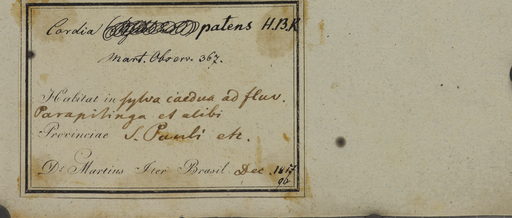 Cordia patens H.B.K
Mart. Observ. 367.
Habitat in sylva caedua ad fluv.
Parapitinga et alibi
Provinciae S. Pauli etc.
Dr. Martius Iter Brasil. Dec. 1817